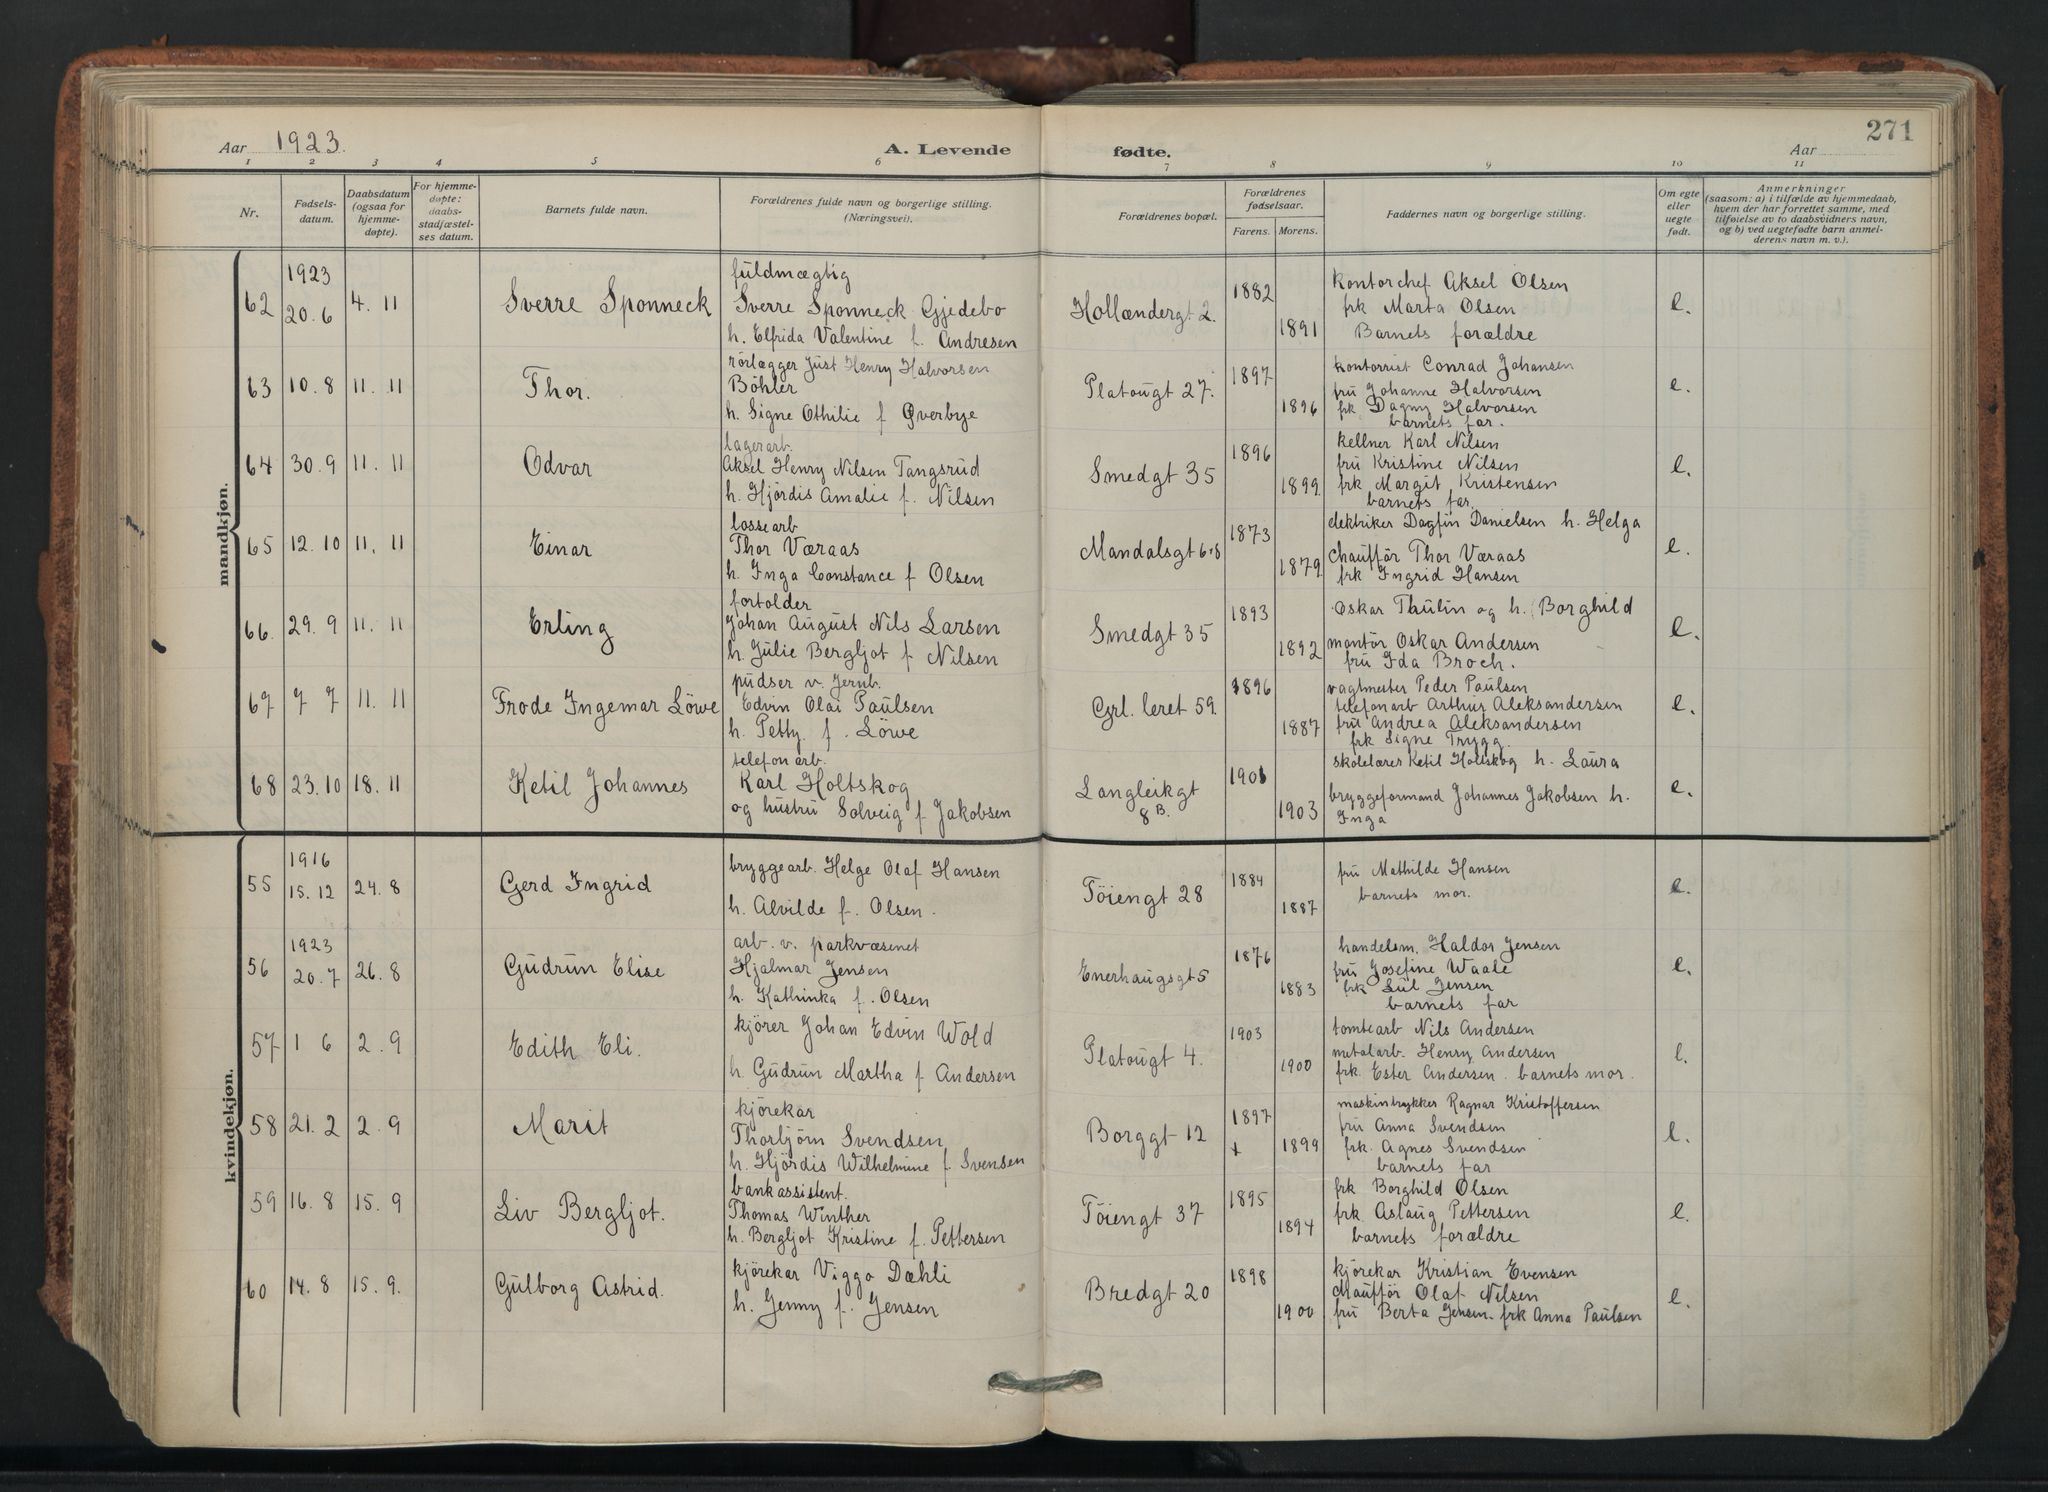 271
Aar 1923. A. Levende fødte. Aar
1 2 3 4 5 6 7 8 9 10 11
Nr.
Fødsels-
datum.
Daabsdatum
(ogsaa for
hjemme-
døpte).
For hjemme-
døpte:
daabs-
stadfæstel-
ses datum.
Barnets fulde navn.
Forældrenes fulde navn og borgerlige stilling.
(Næringsvei).
Forældrenes bopæl.
Forældrenes
fødselsaar.
Farens. Morens.
Faddernes navn og borgerlige stilling.
Om egte
eller
uegte
født.
Anmerkninger
(saasom: a) i tilfælde av hjemmedaab,
hvem der har forrettet samme, med
tilføielse av to daabsvidners navn,
og b) ved uegtefødte barn anmel-
derens navn m. v.).
mandkjøn.
62 1923 20.6 4. 11 Sverre Sponneck
fuldmægtig
Sverre Sponneck Gjedebo
h. Elfrida Valentine f. Andresen
Hollændergt 2. 1882 1891
kontorchef Aksel Olsen
frk Marta Olsen
Barnets forældre
e.
63 10.8 11. 11 Thor.
rörlægger Just Henry Halvorsen
Böhler
h. Signe Othilie f Överbye
Platougt 27. 1897 1896
kontorrist Conrad Johansen
fru Johanne Halvorsen
frk Dagny Halvorsen
barnets far.
e.
64 30.9 11. 11 Odvar
lagerarb.
Aksel Henry Nilsen Tangsrud
h. Hjördis Amalie f. Nilsen
Smedgt 35 1896 1899
kellner Karl Nilsen
fru Kristine Nilsen
frk Margit Kristensen
barnets far.
e.
65 12.10 11. 11 Einar
lossearb
Thor Væraas
h. Inga Constance f Olsen
Mandalsgt 6-8 1873 1879
elektriker Dagfin Danielsen h. Helga
chaufför Thor Væraas
frk Ingrid Hansen
e.
66. 29.9 11. 11 Erling
fortolder
Johan August Nils Larsen
h. Julie Bergljot f Nilsen
Smedgt 35 1893 1892
Oskar Thulin og h. Borghild
montör Oskar Andersen
fru Ida Broch.
e.
67 7 7 11. 11 Frode Ingemar Löwe
pudser v. Jernb.
Edvin Olai Paulsen
h. Petty f. Löwe
Grl. leret 59. 1896 1887
vagtmester Peder Paulsen
telefonarb Arthur Aleksandersen
fru Andrea Aleksandersen
frk Signe Trygg.
e.
68 23.10 18. 11 Ketil Johannes
telefonarb.
Karl Holtskog
og hustru Solveig f Jakobsen
Langleikgt
8 B. 1901 1903
skolelærer Ketil Holtskog h. Laura
bryggeformand Johannes Jakobsen h.
Inga
e.
kvindekjøn.
55 1916 15.12 24.8 Gerd Ingrid
bryggearb. Helge Olaf Hansen
h. Alvilde f. Olsen.
Töiengt 28 1884 1887
fru Mathilde Hansen
barnets mor.
e.
56 1923 20.7 26.8 Gudrun Elise
arb. v. parkvæsenet
Hjalmar Jensen
h. Kathinka f. Olsen
Enerhaugsgt 5 1876 1883
handelsm. Haldor Jensen
fru Josefine Waale
frk Lul Jensen
barnets far
e.
57 1 6 2.9 Edith Eli.
kjörer Johan Edvin Wold
h. Gudrun Martha f Andersen
Platougt 4. 1903 1900
tomtearb Nils Andersen
metalarb. Henry Andersen
frk. Ester Andersen. barnets mor.
e.
58 21.2 2.9 Marit
kjörekar
Thorbjörn Svendsen
h. Hjördis Wilhelmine f. Svensen
Borggt 12 1897 + 1899
maskintrykker Ragnar Kristoffersen
fru Anna Svendsen
frk. Agnes Svendsen
barnets far
e.
59 16.8 15.9 Liv Bergljot.
bankassistent.
Thomas Winther
h. Bergljot Kristine f. Pettersen
Töiengt 37 1895 1894
frk Borghild Olsen
frk. Aslaug Pettersen
barnets forældre
e.
60 14.8 15.9. Gulborg Astrid.
kjörekar Viggo Dæhli
h. Jenny f. Jensen
Bredgt 20 1898 1900
kjörekar Kristian Evensen
chaufför Olaf Nilsen
fru Berta Jensen. frk Anna Paulsen
e.